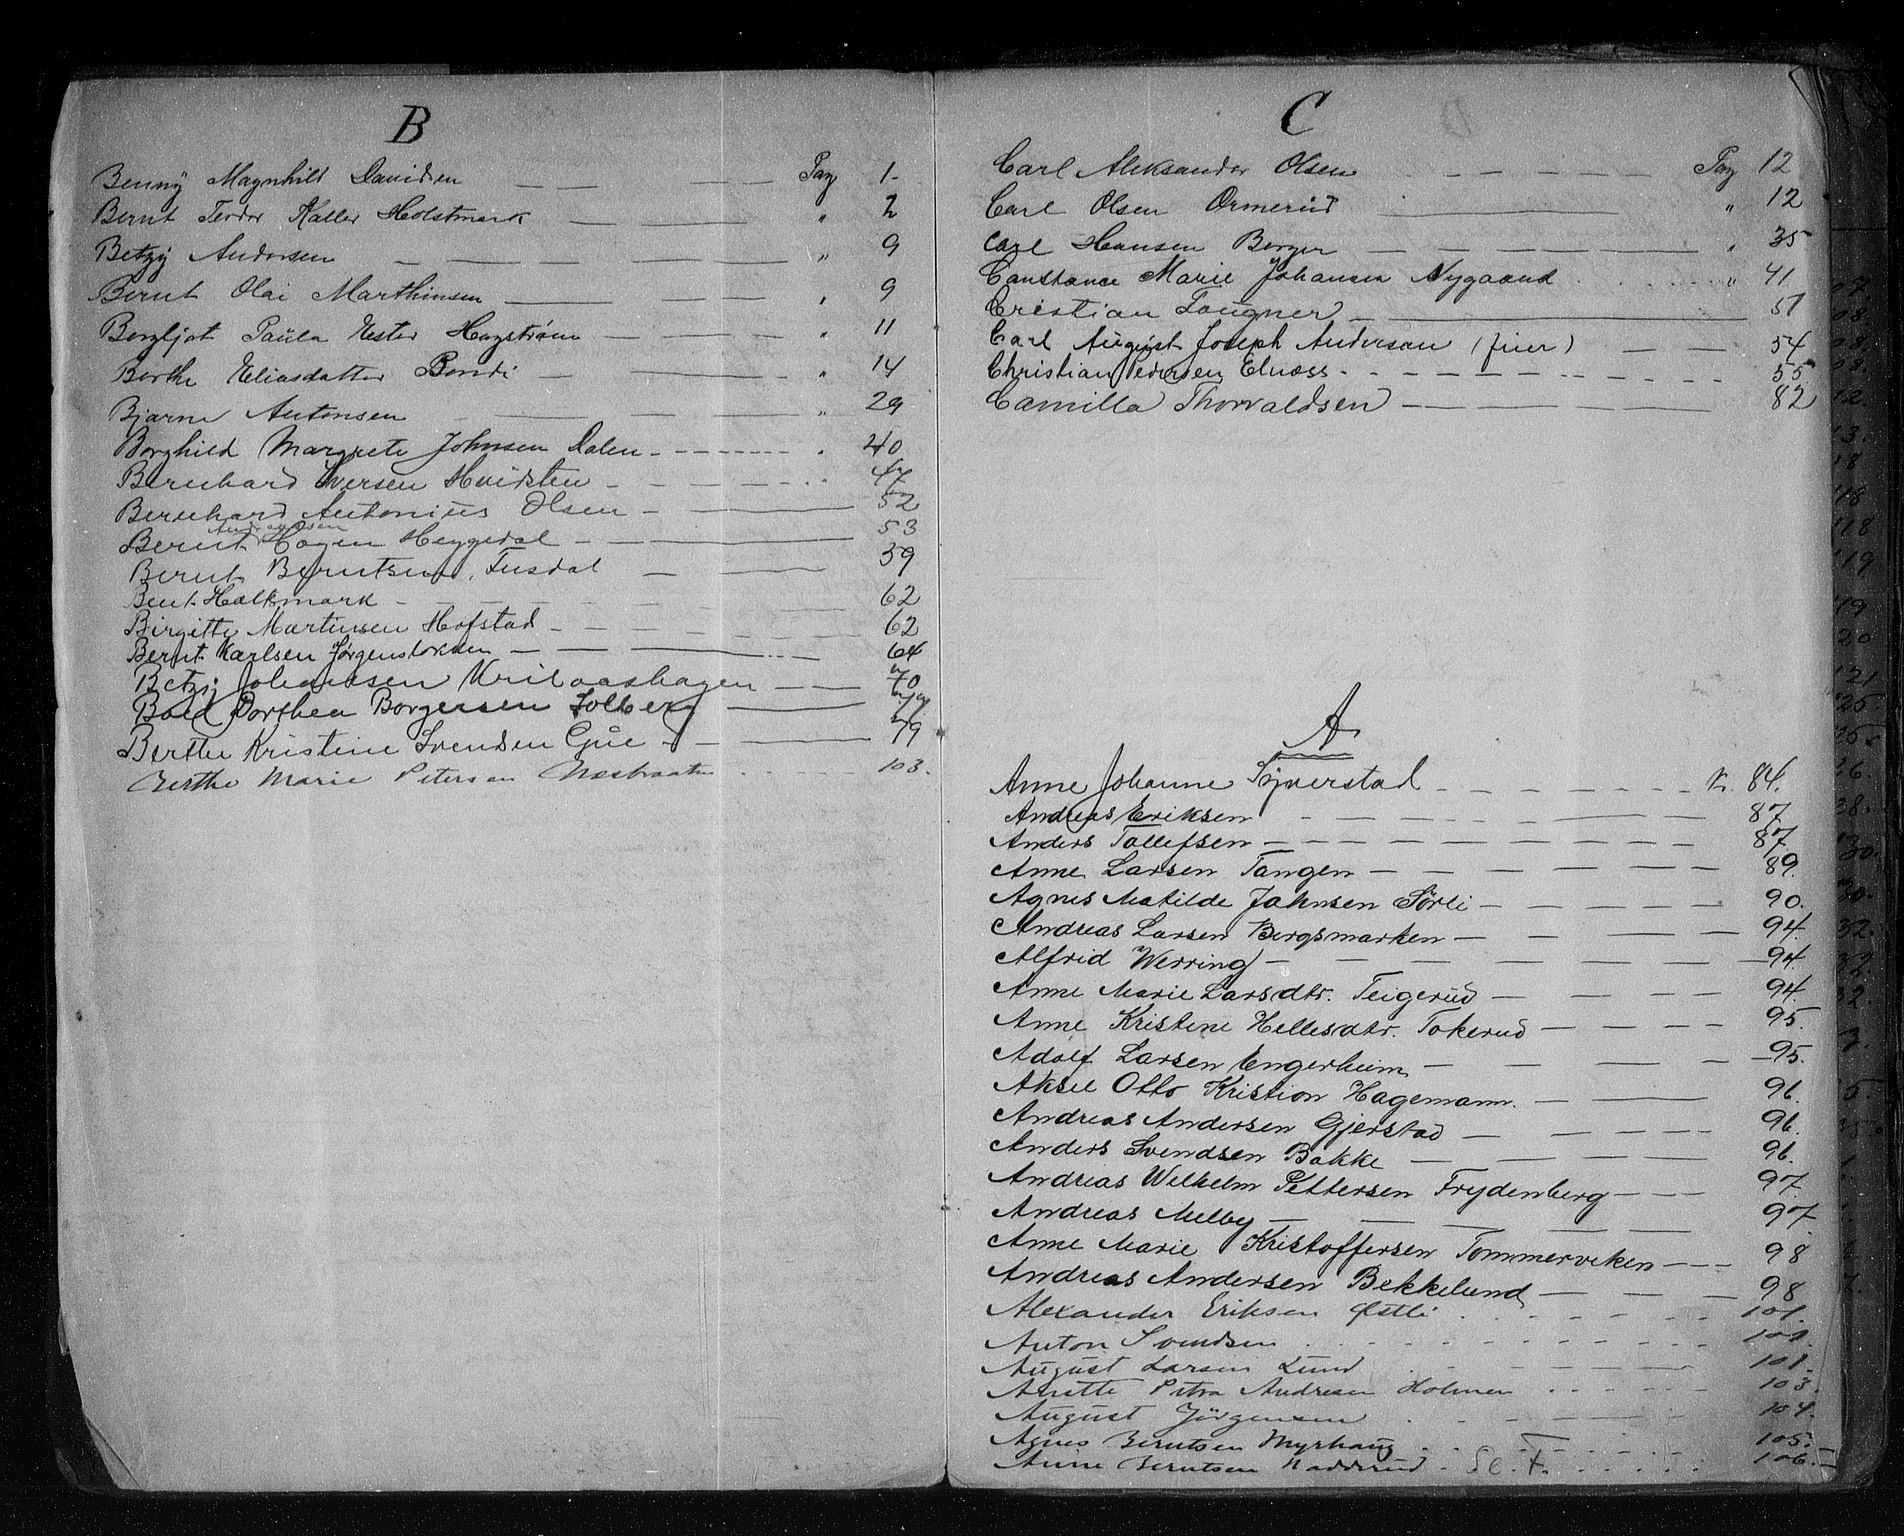 B
Benny Magnhilt Davidsen Pag 1.
Bernt Teodor Kaller Holstmark " 2
Betzy Andersen " 9
Bernt Olai Marthinsen " 9
Borgljot Paula Ester Hagstrøm " 11
Berthe Eliasdatter Bondi " 14
Bjarne Antonsen " 29
Borghild Margrete Johnsen Dalen 40
Bernhard Iversen Hvidsten 47
Bernhard Antonius Olsen 52
Bernt Hagen Heggedal 53
Bernt Berntsen, Fusdal 59
Bent Halkmark 62
Birgitte Martinsen Hofstad 62
Bernt Karlsen Jørgensløkken 64
Betzy Johansen 70
Dorthea Borgersen Solberg 77
Berthe Kristine Svendsen Gue 79
Berthe Marie Petersen Næsbraaten 103.
C
Carl Aleksander Olsen Pag 12
Carl Olsen Ormerud " 12
Carl Hansen Berger " 35
Constance Marie Johansen Nygaard " 41
Cristian Tangner 51
Carl August Joseph Anderson (fuer) 54
Christian Pedersen Elnæss 55
Camilla Thorvaldsen 82
A
Anne Johanne Syverstad 84.
Andreas Eriksen 87
Anders Tollefsen 87
Anne Larsen Tangen 89.
Agnes Matilde Johnsen Sørli 90.
Andreas Larsen Bergsmarken 94.
Alfrid Werring 94.
Anne Marie Larsdtr. Teigerud 94.
Anne Kristine Hellesdtr. Tokerud 95.
Adolf Larsen Engerheim 95.
Aksel Otto Kristian Hagemann. 96.
Andreas Andersen Gjerstad 96.
Anders Svendsen Bakke 96.
Andreas Wilhelm Pettersen Frydenberg 97.
Andreas Melby 97
Anne Marie Kristoffersen Tommerviken 98
Andreas Andersen Bekkelund 98
Alexander Eriksen Østli 101.
Anton Svendsen 101.
August Larsen Lund 101.
Anette Petra Andresen Holmen 103.
August Jørgensen 104.
Agnes Berntsen Myrhaug 105.
Anne Berntsen Nadderud 106.